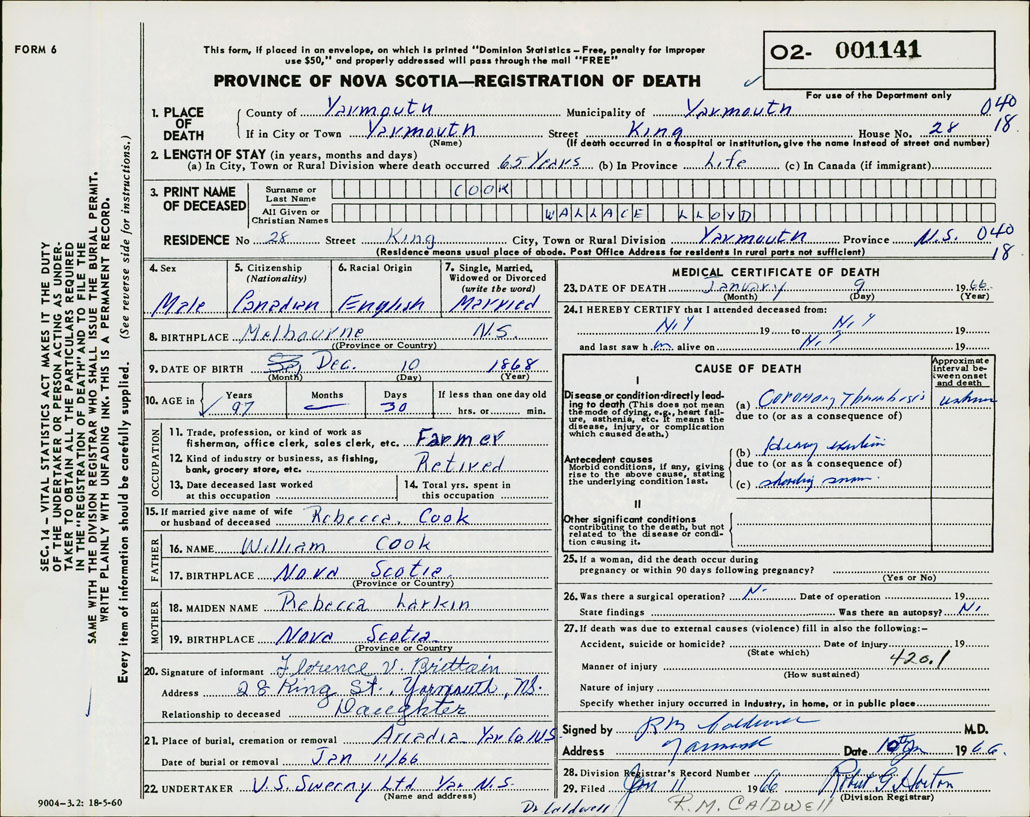 FORM 6
This form, if placed in an envelope, on which is printed "Dominion Statistics – Free, penalty for improper
use $50," and properly addressed will pass through the mail "FREE"
PROVINCE OF NOVA SCOTIA—REGISTRATION OF DEATH
02- 001141
For use of the Department only
1. PLACE OF DEATH County of Yarmouth Municipality of Yarmouth 040
If in City or Town Yarmouth Street King House No. 28 18
(Name) (If death occurred in a hospital or institution, give the name instead of street and number)
2. LENGTH OF STAY (in years, months and days)
(a) In City, Town or Rural Division where death occurred 65 Years (b) In Province Life (c) In Canada (if immigrant)
3. PRINT NAME OF DECEASED Surname or Last Name COOK
All Given or Christian Names WALLACE LLOYD
RESIDENCE No 28 Street King City, Town or Rural Division Yarmouth Province N.S. 040
(Residence means usual place of abode. Post Office Address for residents in rural parts not sufficient) 18
4. Sex 5. Citizenship (Nationality) 6. Racial Origin 7. Single, Married, Widowed or Divorced (write the word)
Male Canadian English Married
8. BIRTHPLACE Melbourne N.S.
((Province or Country)
9. DATE OF BIRTH Dec. 10 1868
(Month) (Day) (Year)
10. AGE in Years Months Days If less than one day old
97 30 hrs. or min.
OCCUPATION
11. Trade, profession, or kind of work as
fisherman, office clerk, sales clerk, etc. Farmer
12. Kind of industry or business, as fishing,
bank, grocery store, etc. Retired
13. Date deceased last worked
at this occupation
14. Total yrs. spent in
this occupation
15. If married give name of wife
or husband of deceased Rebecca Cook
FATHER
16. NAME William Cook
17. BIRTHPLACE Nova Scotia
(Province or Country)
MOTHER
18. MAIDEN NAME Rebecca Larkin
19. BIRTHPLACE Nova Scotia
(Province or Country
20. Signature of informant Florence V. Brittain
Address 28 King St., Yarmouth, N.S.
Relationship to deceased Daughter
21. Place of burial, cremation or removal Arcadia Yar Co N.S.
Date of burial or removal Jan 11/66
22. UNDERTAKER V.S. Sweeny Ltd Yar N.S.
(Name and address)
9004–3.2: 18-5-60
MEDICAL CERTIFICATE OF DEATH
23. DATE OF DEATH January 9 1966
(Month) (Day) (Year)
24. I HEREBY CERTIFY that I attended deceased from:
19 to 19
and last saw h m alive on 19
CAUSE OF DEATH
Approximate interval between onset and death
I
Disease or condition-directly leading to death (This does not mean the mode of dying, e.g., heart failure, asthenia, etc. It means the disease, injury, or complication which caused death.)
(a) Coronary Thrombosis
due to (or as a consequence of)
Antecedent causes
Morbid conditions, if any, giving rise to the above cause, stating the underlying condition last.
(b) Heavy exertion
due to (or as a consequence of)
(c) shoveling snow.
II
Other significant conditions
contributing to the death, but not related to the disease or condition causing it.
25. If a woman, did the death occur during
pregnancy or within 90 days following pregnancy?
(Yes or No)
26. Was there a surgical operation? No Date of operation 19
State findings Was there an autopsy? No
27. If death was due to external causes (violence) fill in also the following:–
Accident, suicide or homicide? Date of injury 19
(State which) 420.1
Manner of injury
(How sustained)
Nature of injury
Specify whether injury occurred in industry, in home, or in public place
Signed by RM Caldwell M.D.
Address Yarmouth Date 10 Jan 1966.
28. Division Registrar's Record Number
29. Filed Jan 11 1966 Robert G Horton
(Division Registrar)
Dr Caldwell R.M. CALDWELL
SEC. 14 – VITAL STATISTICS ACT MAKES IT THE DUTY
OF THE UNDERTAKER OR PERSON ACTING AS UNDER-
TAKER TO OBTAIN ALL THE PARTICULARS REQUIRED
IN THE "REGISTRATION OF DEATH" AND TO FILE THE
SAME WITH THE DIVISION REGISTRAR WHO SHALL ISSUE THE BURIAL PERMIT.
WRITE PLAINLY WITH UNFADING INK. THIS IS A PERMANENT RECORD.
Every item of information should be carefully supplied. (See reverse side for instructions.)